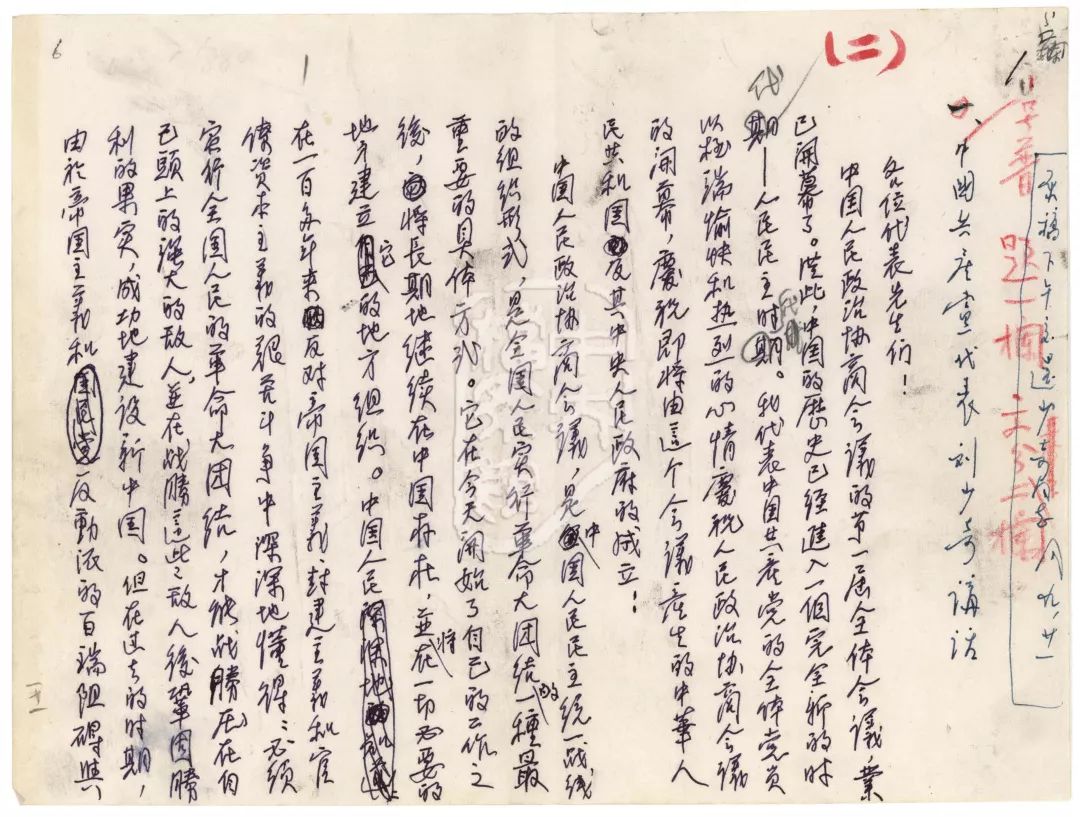 (二)
一、中國共產党代表刘少奇講话
各位代表先生们！
中国人民政治协商会議的第一届全体会議，業
已開幕了。從此，中国的歷史已经進入一個完全新的時
代——人民民主時代。我代表中国共產党的全体党員
以極端愉快和热烈的心情慶祝人民政治协商会議
的開幕，慶祝即将由這个会議產生的中華人
民共和国及其中央人民政府的成立！
中国人民政治协商会議，是中国人民民主統一战线
的组织形式，是全国人民实行革命大团结的一種最
重要的具体方式。它在今天開始了自己的工作之
後，将長期地继续在中国存在，並将在一切必要的
地方建立它的地方组织。中国人民
在一百多年来反对帝国主義、封建主義和官
僚資本主義的艱苦斗争中深深地懂得：必須
实行全国人民的革命大团结，才能战勝压在自
己頭上的强大的敌人，並在战勝這些敌人後鞏固勝
利的果实，成功地建設新中国。但在过去的時期，
由於帝国主義和国民党反動派的百端阻碍與
6